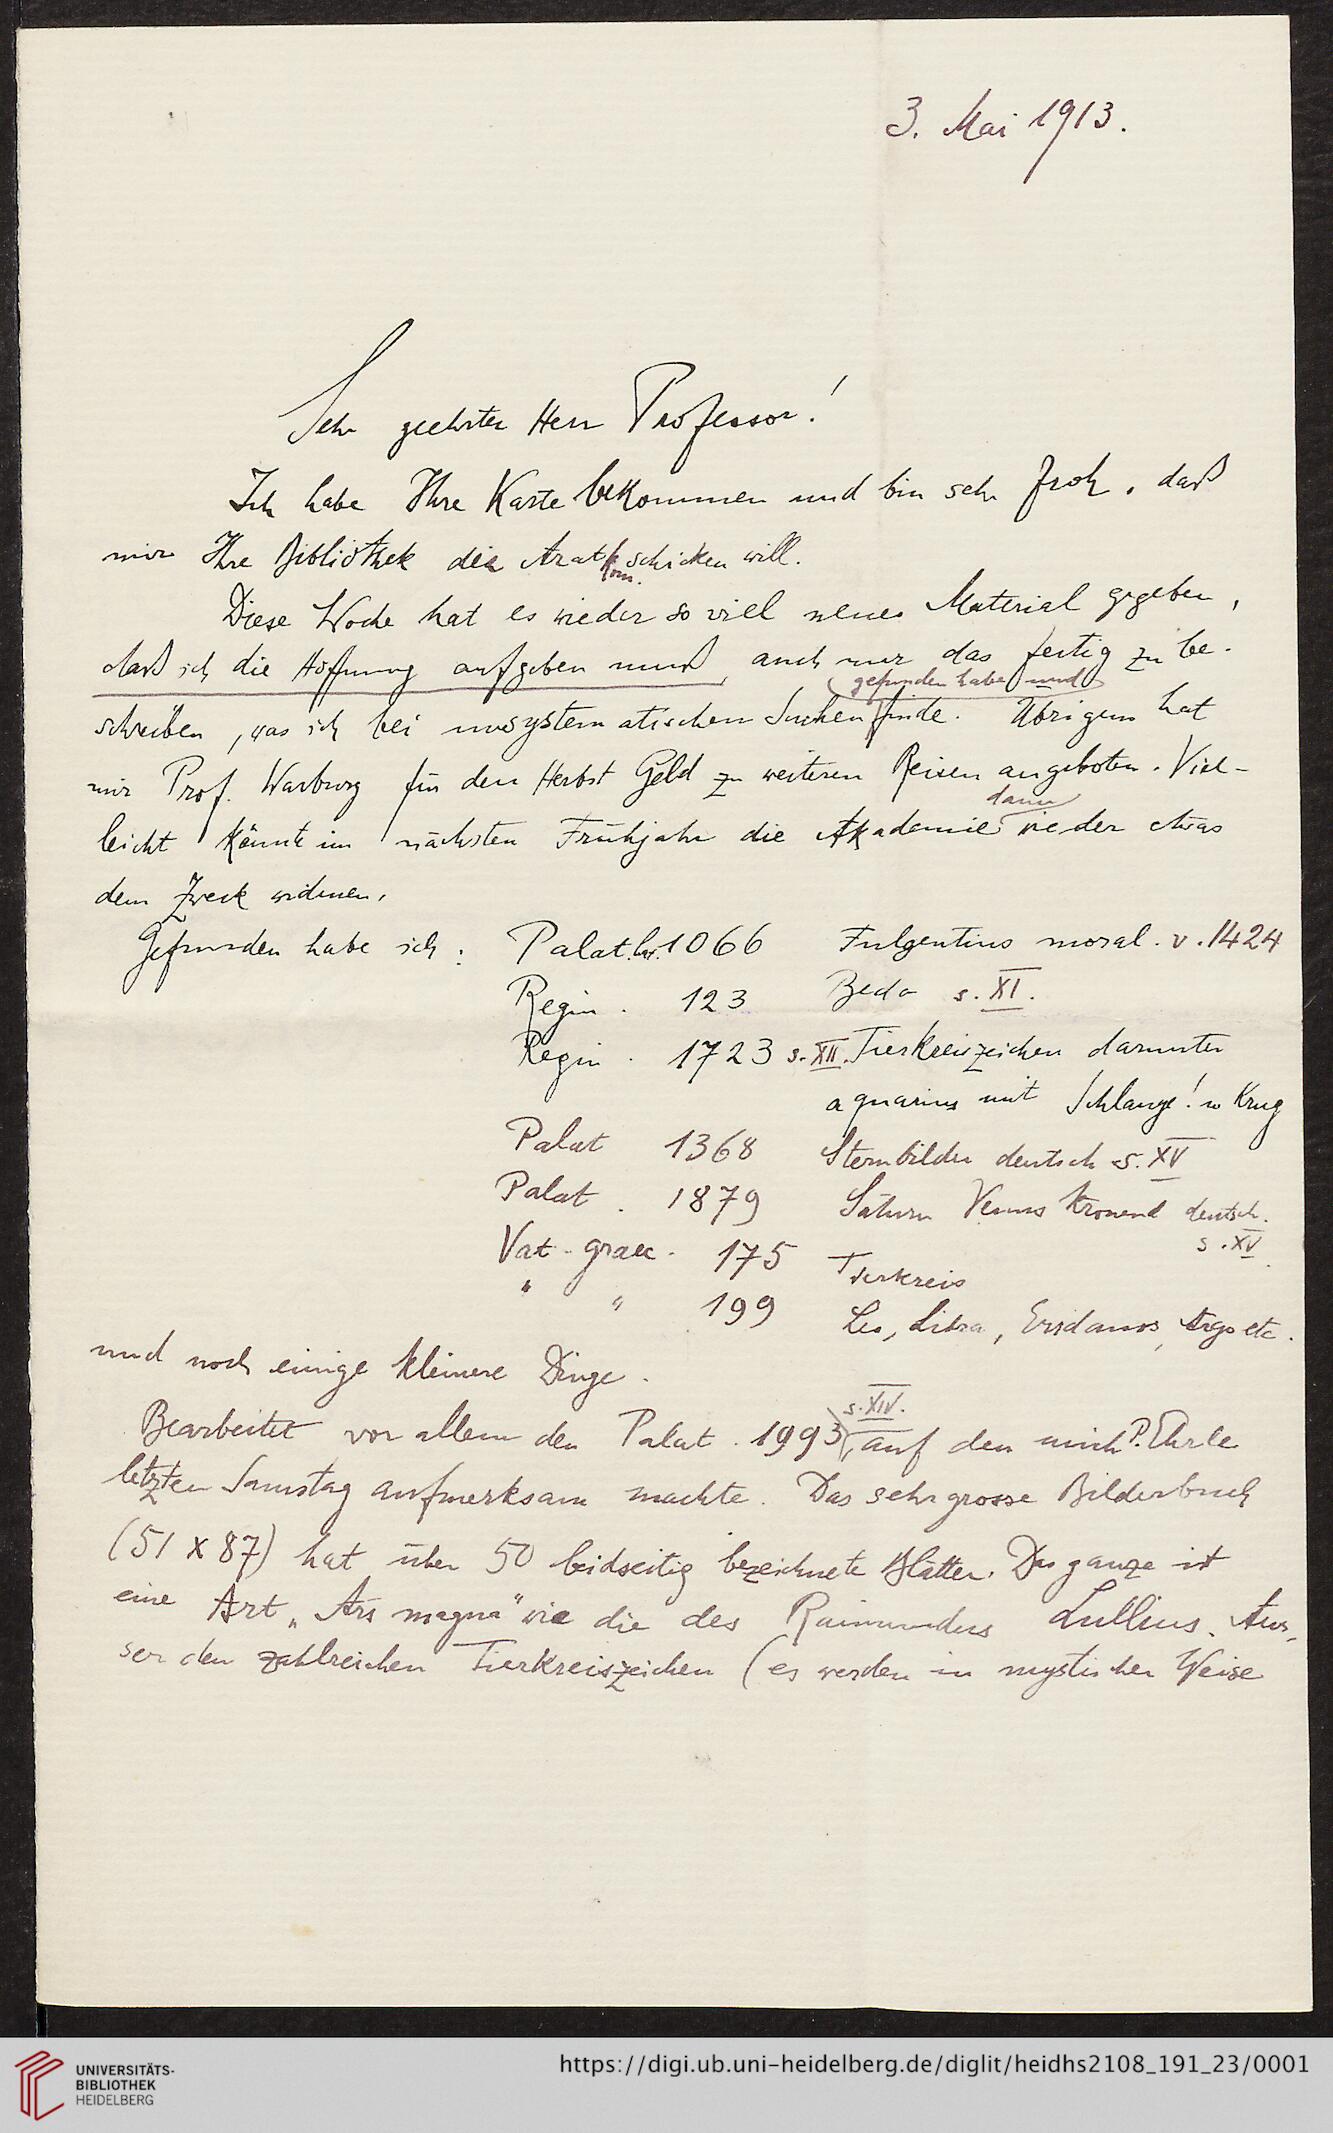 3. Mai 1913.
Sehr geehrter Herr Professor!
Ich habe Ihre Karte bekommen und bin sehr froh, daß
mir Ihre Bibliothek die Arat schicken will.
Diese Woche hat es wieder so viel neues Material gegeben,
daß ich die Hoffnung aufgeben muß, auch nur das fertig zu be-
gefunden habe und
schreiben, was ich bei unsystematischem Suchen finde. Übrigens hat
mir Prof. Warburg für den Herbst Geld zu weiteren Reisen angeboten. Viel-
dann
leicht könnte im nächsten Frühjahr die Akademie wieder etwas
dem Zweck widmen.
Gefunden habe ich: Palat. lat. 1066 Fulgentius moral. v. 1424
Regin. 123 Beda s. XI.
Regin. 1723 s. XII. Tierkreiszeichen darunter
aquarius mit Schlange! u Krug
Palat 1368 Sternbilder deutsch s. XV
Palat. 1879 Saturn Venus deutsch.
s. XV
Vat. graec. 175 Tierkreis
" " 199 Leo, Libra, Eridanos, Argo etc.
und noch einige kleinere Dinge.
s. XIV.
Bearbeitet vor allem den Palat. 1993, auf den mich P. Ehrle
letzten Samstag aufmerksam machte. Das sehr grosse Bilderbuch
(51 x 87) hat über 50 beidseitig bezeichnete Blätter. Das ganze ist
eine Art „Ars magna" wie die des Raimundus Lullius. Aus-
ser den zahlreichen Tierkreiszeichen (es werden in mystischer Weise
UNIVERSITÄTS-
BIBLIOTHEK
HEIDELBERG
https://digi.ub.uni-heidelberg.de/diglit/heidhs2108_191_23/0001